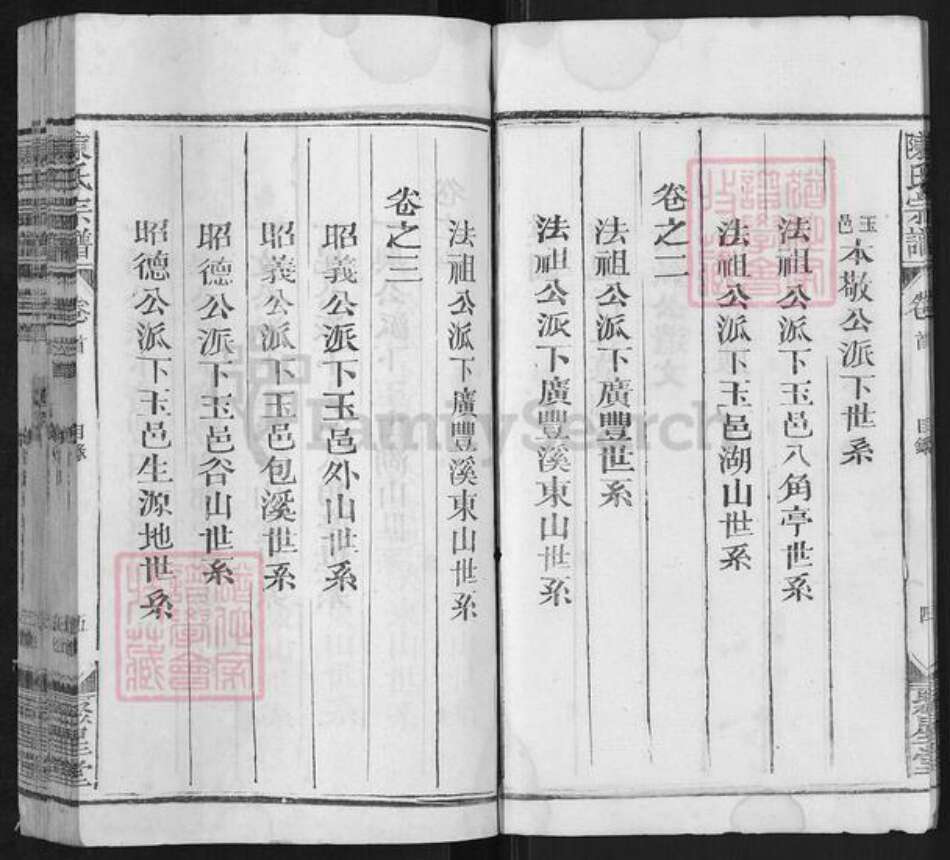 陳氏宗譜
卷首
目錄
四
聚星堂
玉邑本敬公派下世系
法祖公派下玉邑八角亭世系
法祖公派下玉邑湖山世系
卷之二
法祖公派下廣豐世系
法祖公派下廣豐溪東山世系
法祖公派下廣豐溪東山世系
卷之三
昭義公派下玉邑外山世系
昭義公派下玉邑包溪世系
昭德公派下玉邑谷山世系
昭德公派下玉邑生源地世系
陳氏宗譜
卷首
目錄
五
聚星堂
FamilySearch